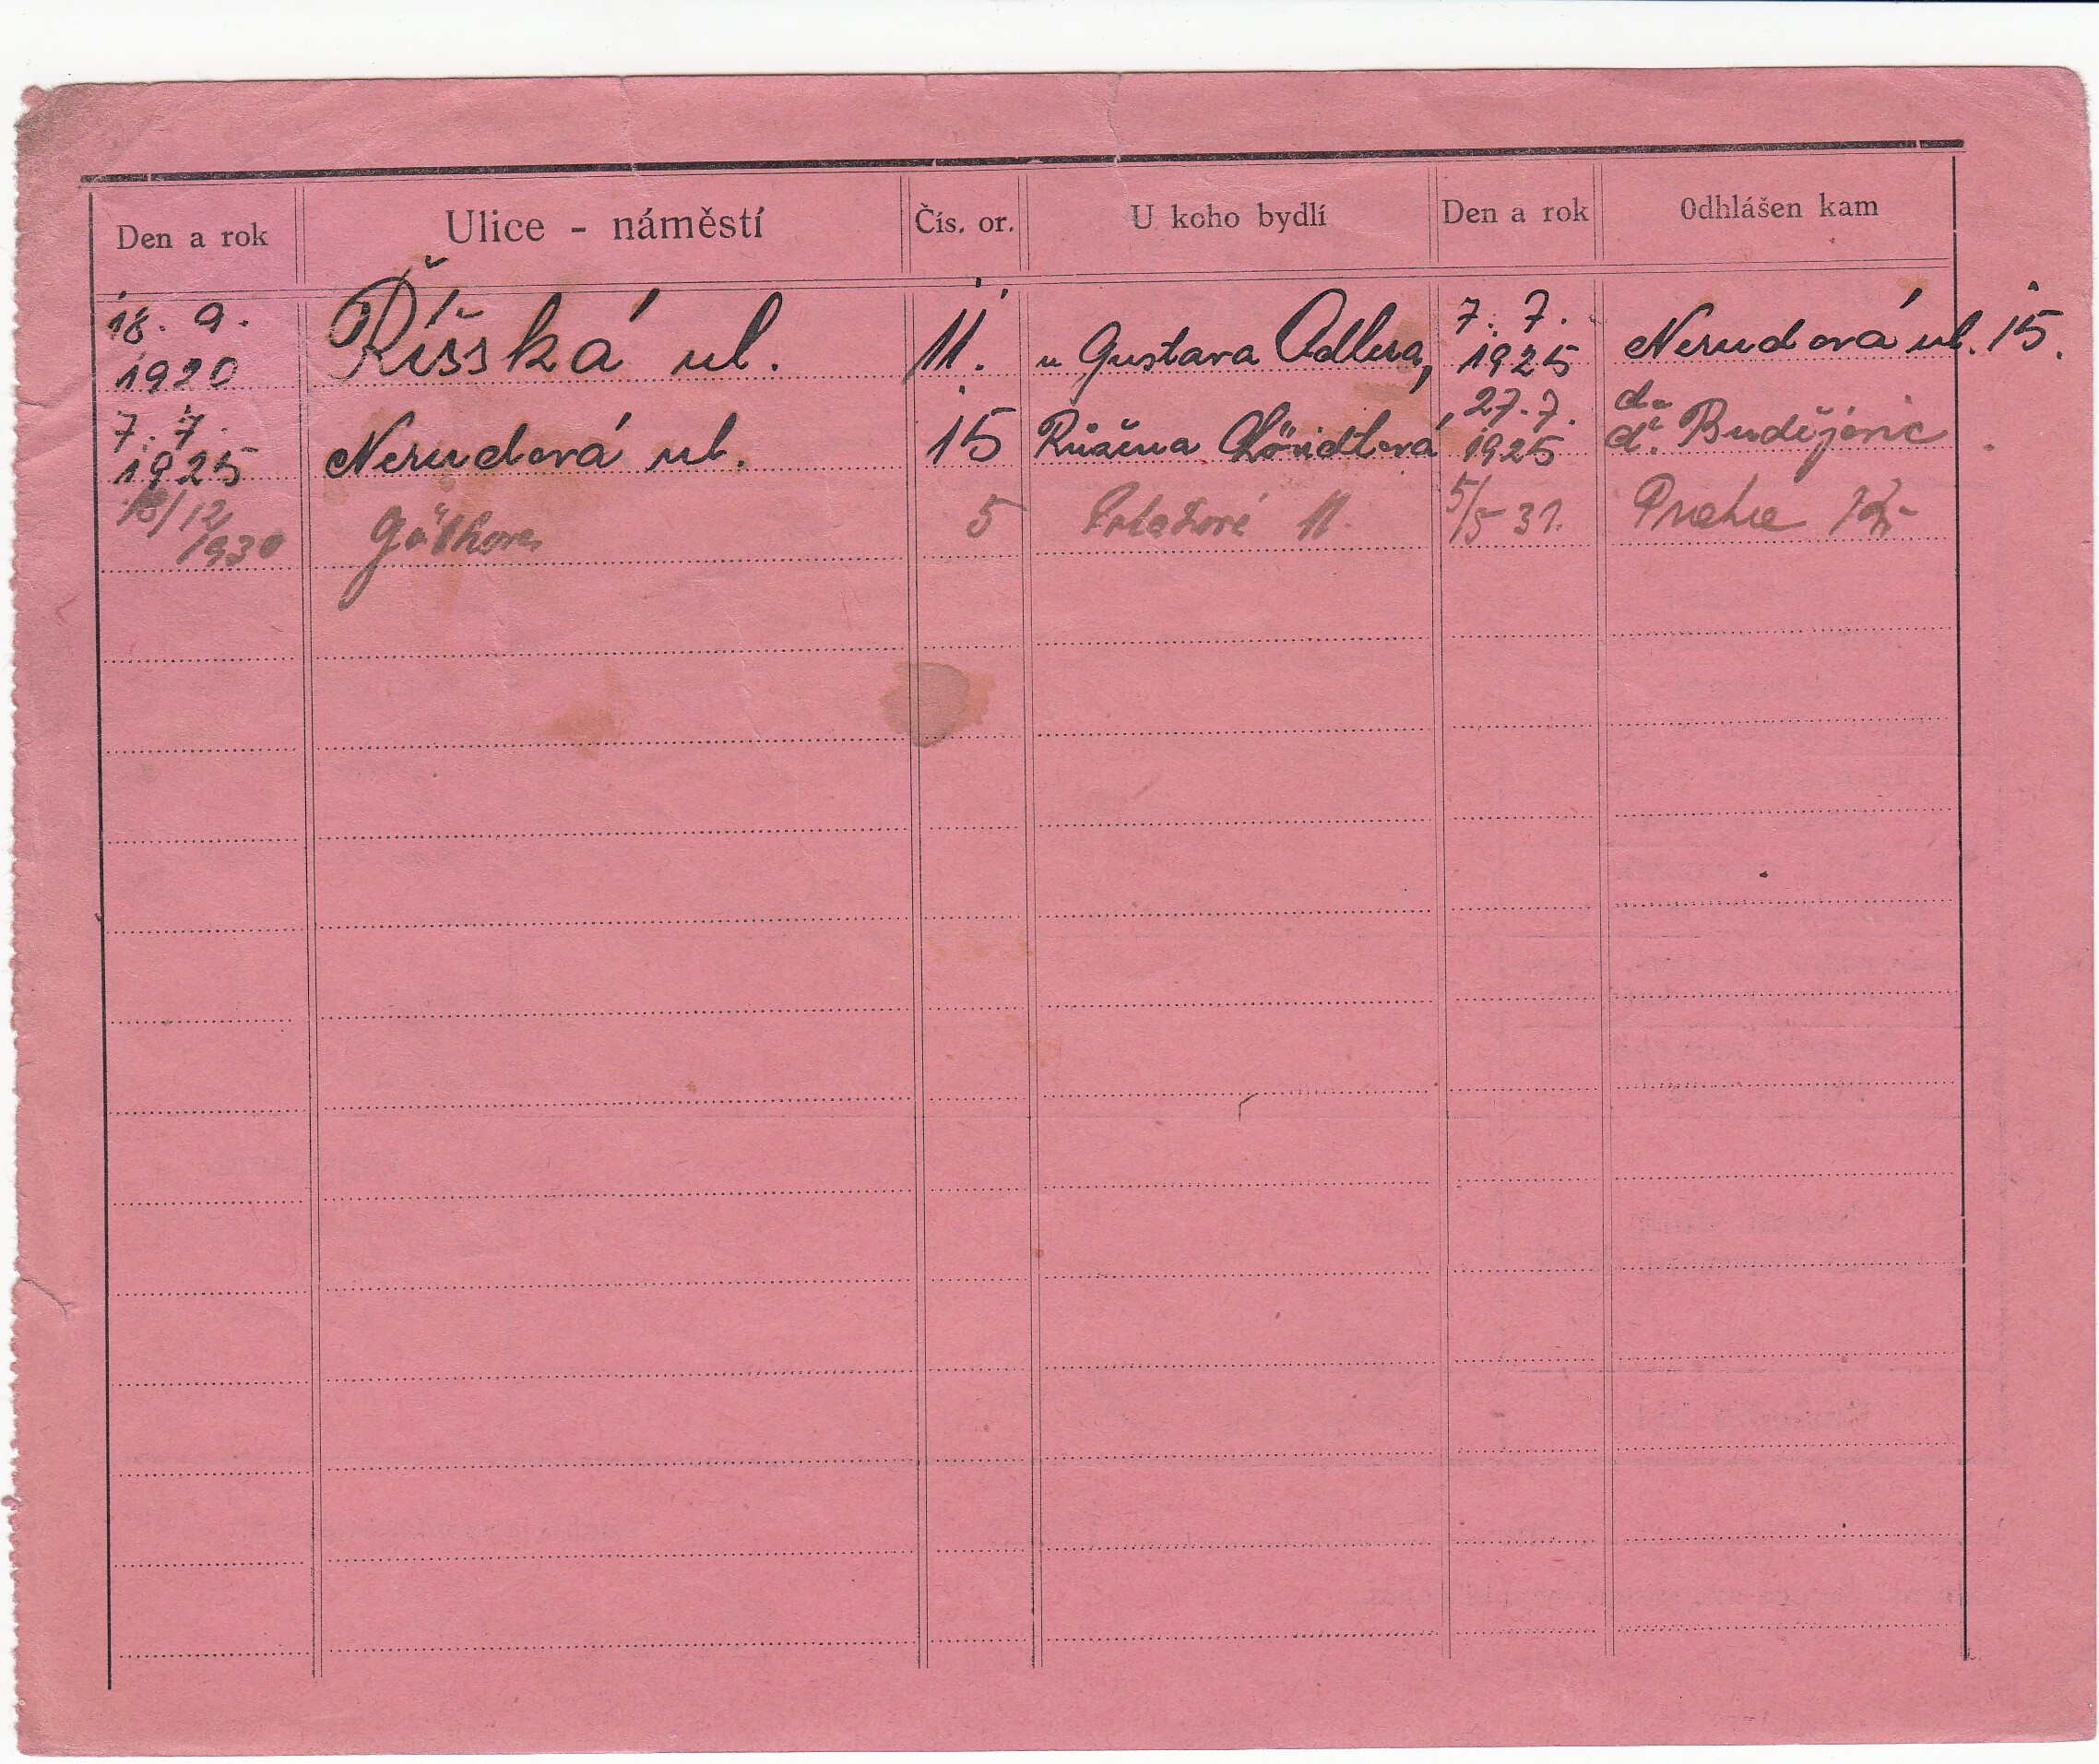 Den a rok Ulice - náměstí Čís. or. U koho bydlí Den a rok Odhlášen kam
18. 9. 1920 Říšská ul. 11. u Gustava Adlera, 7. 7. 1925 Nerudová ul. 15.
7. 7. 1925 Nerudová ul. 15 Růžena 27. 7. 1925 do Č. Budějovic
18/12 1930 Göthova 5 11. 5/5 31. Praha